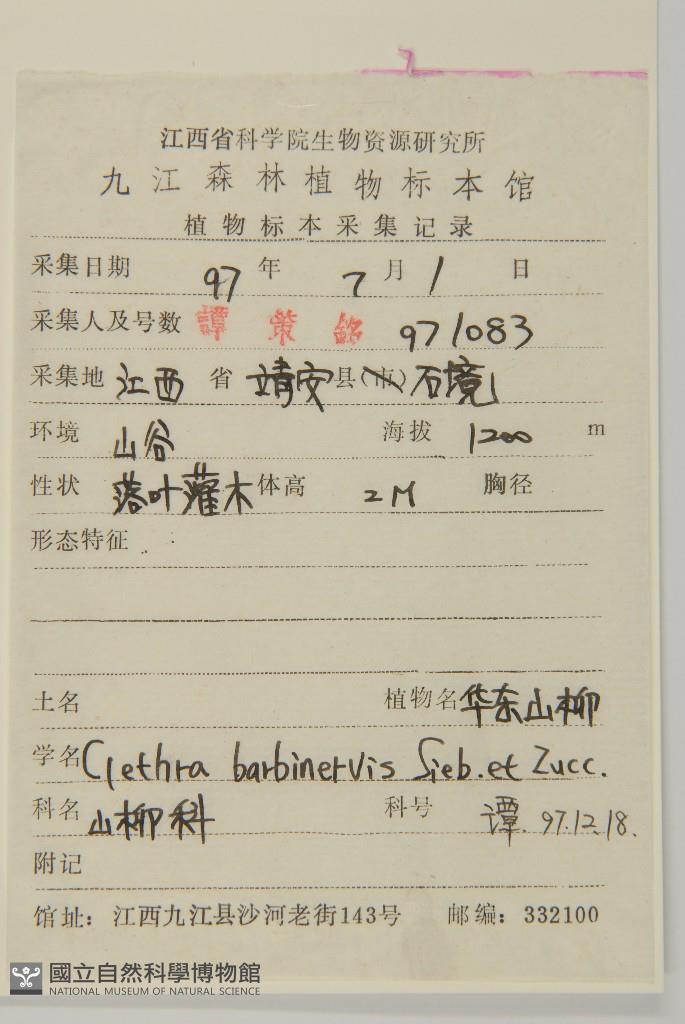 江西省科学院生物资源研究所
九江森林植物标本馆
植物标本采集记录
采集日期 97 年 7 月 1 日
采集人及号数 譚策銘 971083
采集地 江西 省 靖安 县(市) 石境
环境 山谷 海拔 1200 m
性状 落叶灌木 体高 2M 胸径
形态特征
土名 植物名 华东山柳
学名 Clethra barbinervis Sieb. et Zucc.
科名 山柳科 科号 谭 97.12.18.
附记
馆址：江西九江县沙河老街143号 邮编：332100
國立自然科學博物館
NATIONAL MUSEUM OF NATURAL SCIENCE